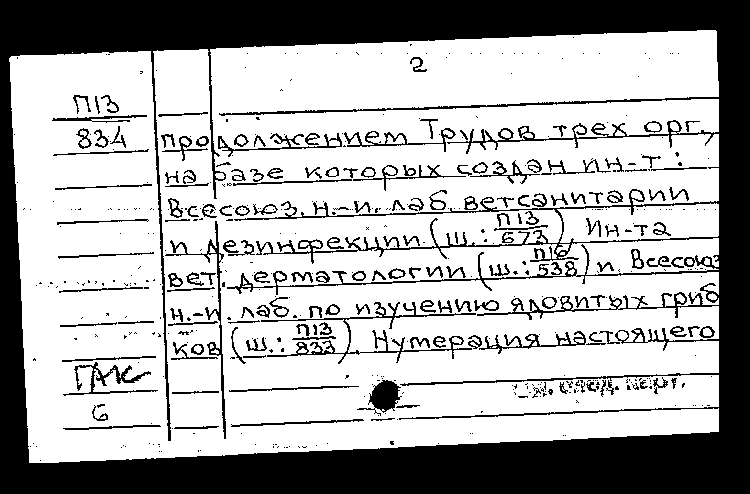 2
П13
834
продолжением Трудов трех орг.,
на базе которых создан ин-т:
Всесоюз. н.-и. лаб. ветсанитарии
и дезинфекции (ш.: П13/673) Ин-та
вет. дерматологии (ш.: П16/538) и Всесоюз
н.-и. лаб. по изучению ядовитых гриб
ков (ш.: П13/833). Нумерация настоящего
ГАК
6
См. след. карт.